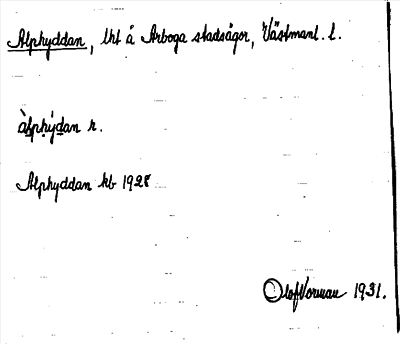 Alphyddan, lht å Arboga stadsägor, Västmanl. l.
àlphýdan r.
Alphyddan kb 1928
Olof Vorman 1931.